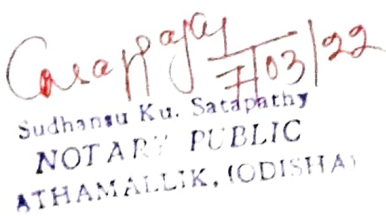 7/03/22
Sudhansu Ku. Satapathy
NOTARY PUBLIC
ATHAMALLIK, (ODISHA)